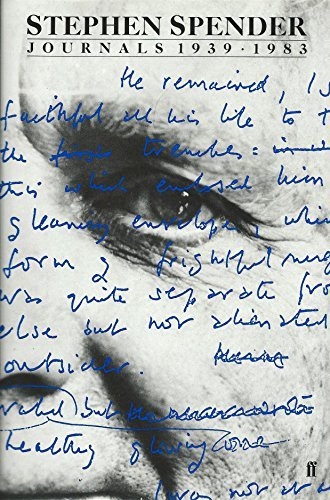 STEPHEN SPENDER
JOURNALS 1939-1983
He remained, I
faithful all his life to t
the trenches:
this which enclosed him
gleaming envelope, whi
form of frightful
was quite separate fro
else but not alienated
outsider.
but
healthy glowing
I was not at
ff